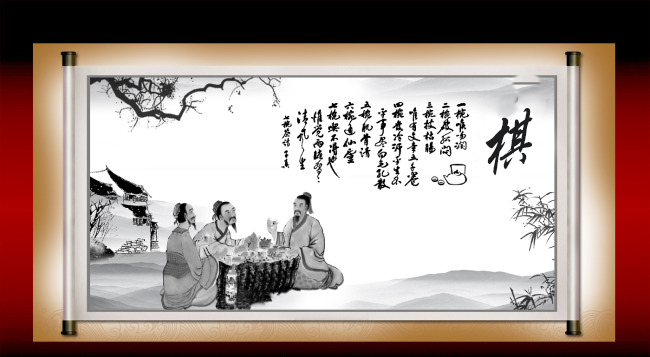 棋
一椀喉吻润
二椀破孤闷
三椀搜枯肠
唯有文章五千卷
四椀发轻汗平生不
平事尽向毛孔散
五椀肌骨清
六椀通仙灵
七椀吃不得也
清风生
七椀茶诗